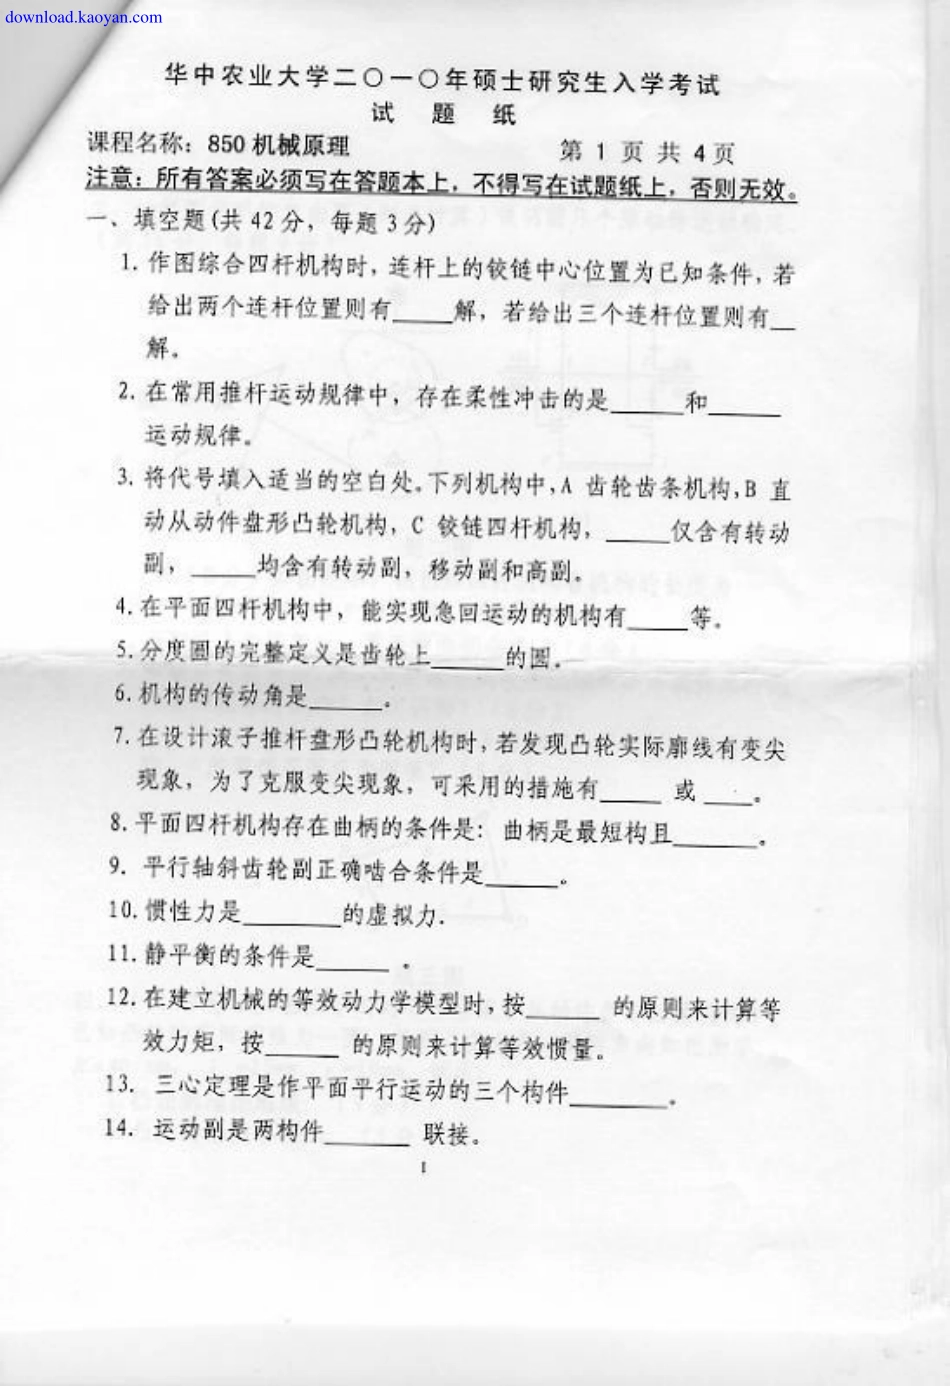 download.kaoyan.com
华中农业大学二〇一〇年硕士研究生入学考试
试 题 纸
课程名称：850 机械原理
第 1 页 共 4 页
注意：所有答案必须写在答题本上，不得写在试题纸上，否则无效。
一、填空题(共 42 分，每题 3 分)
1. 作图综合四杆机构时，连杆上的铰链中心位置为已知条件，若
给出两个连杆位置则有____解，若给出三个连杆位置则有__
解。
2. 在常用推杆运动规律中，存在柔性冲击的是______和______
运动规律。
3. 将代号填入适当的空白处。下列机构中，A 齿轮齿条机构，B 直
动从动件盘形凸轮机构，C 铰链四杆机构，_____仅含有转动
副，_____均含有转动副，移动副和高副。
4. 在平面四杆机构中，能实现急回运动的机构有_____等。
5. 分度圆的完整定义是齿轮上______的圆.
6. 机构的传动角是______。
7. 在设计滚子推杆盘形凸轮机构时，若发现凸轮实际廓线有变尖
现象，为了克服变尖现象，可采用的措施有_____ 或 ____。
8. 平面四杆机构存在曲柄的条件是：曲柄是最短构且_______。
9. 平行轴斜齿轮副正确啮合条件是______。
10. 惯性力是________的虚拟力.
11. 静平衡的条件是______ 。
12. 在建立机械的等效动力学模型时，按______ 的原则来计算等
效力矩，按______ 的原则来计算等效惯量。
13. 三心定理是作平面平行运动的三个构件________。
14. 运动副是两构件_______ 联接。
1